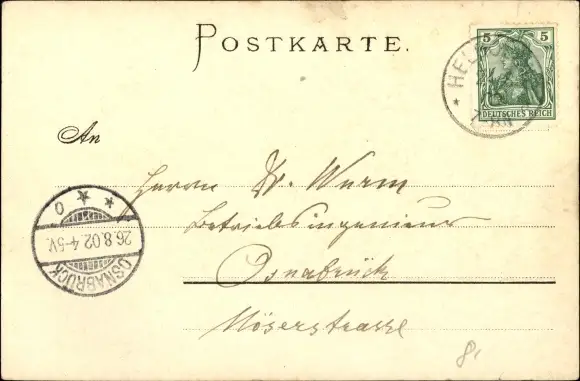 POSTKARTE.
5 5
DEUTSCHES REICH
HEL
An
Herrn Dr. Wurm
Betriebsingenieur
Osnabrück
Möserstrasse
OSNABRÜCK
26.8.02.4-5V.
* * O
8.